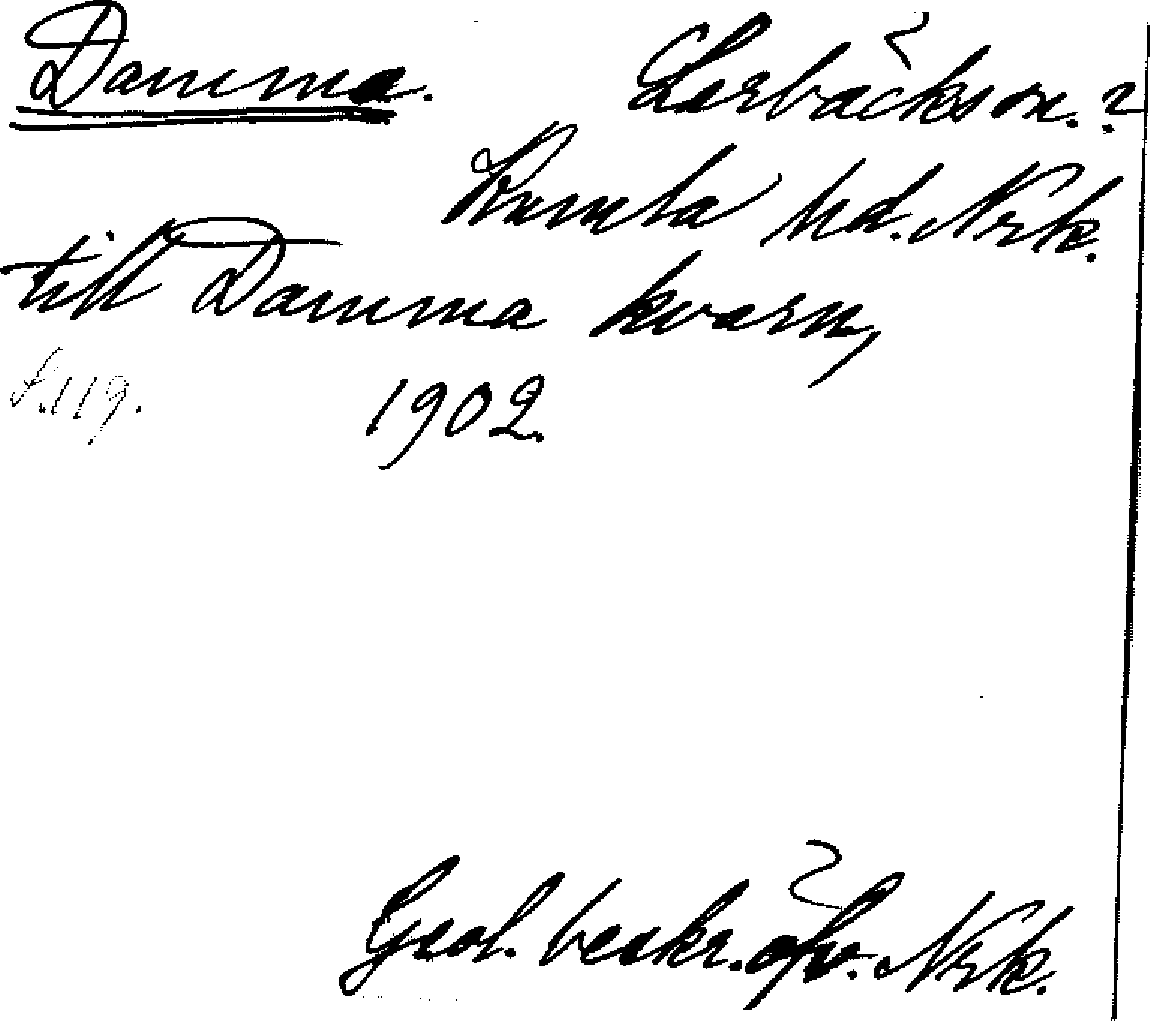 Damma. Lerbäcks sn.?
Kumla hd. Nrk.
till Damma kvarn,
s. 119. 1902.
Geol. beskr. öfv. Nrk.